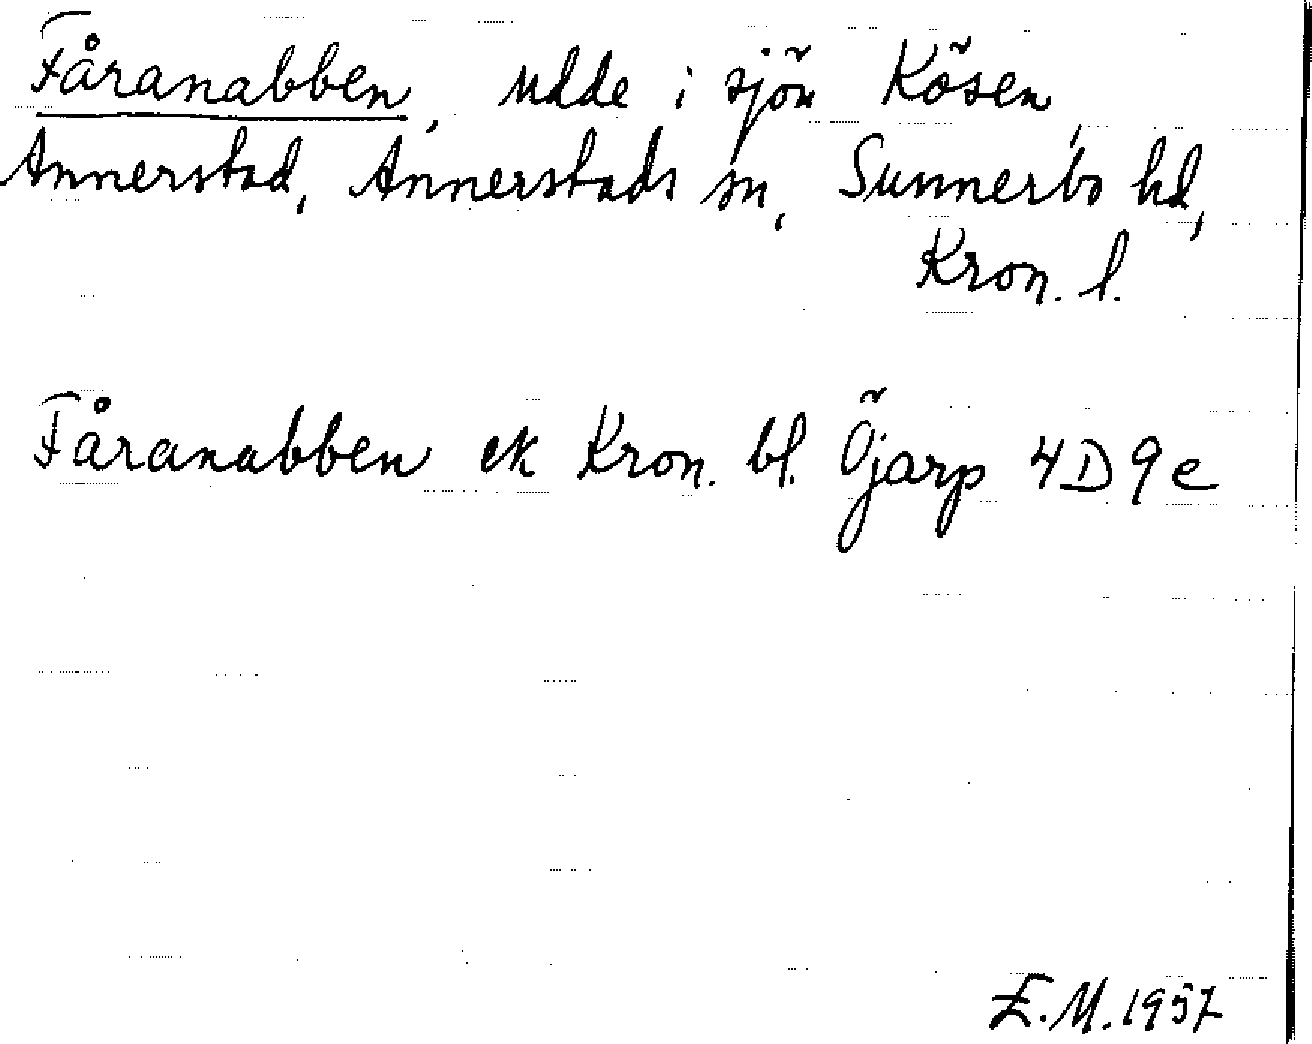 Fåranabben, udde i sjön Kösen,
Annerstad, Annerstads sn, Sunnerbo hd,
Kron. l.
Fåranabben ek Kron. bl. Öjarp 4D9e
E.M. 1957